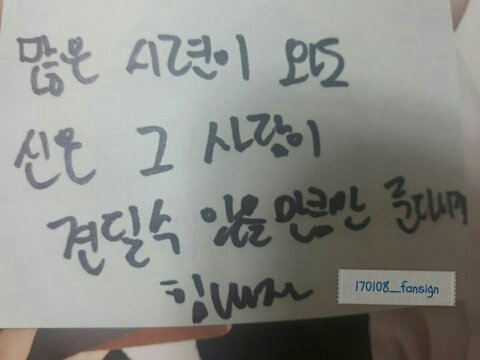 많은 시련이 와도
신은 그 사람이
견딜수 있을만큼만 준다네
힘내자
170108_fansign